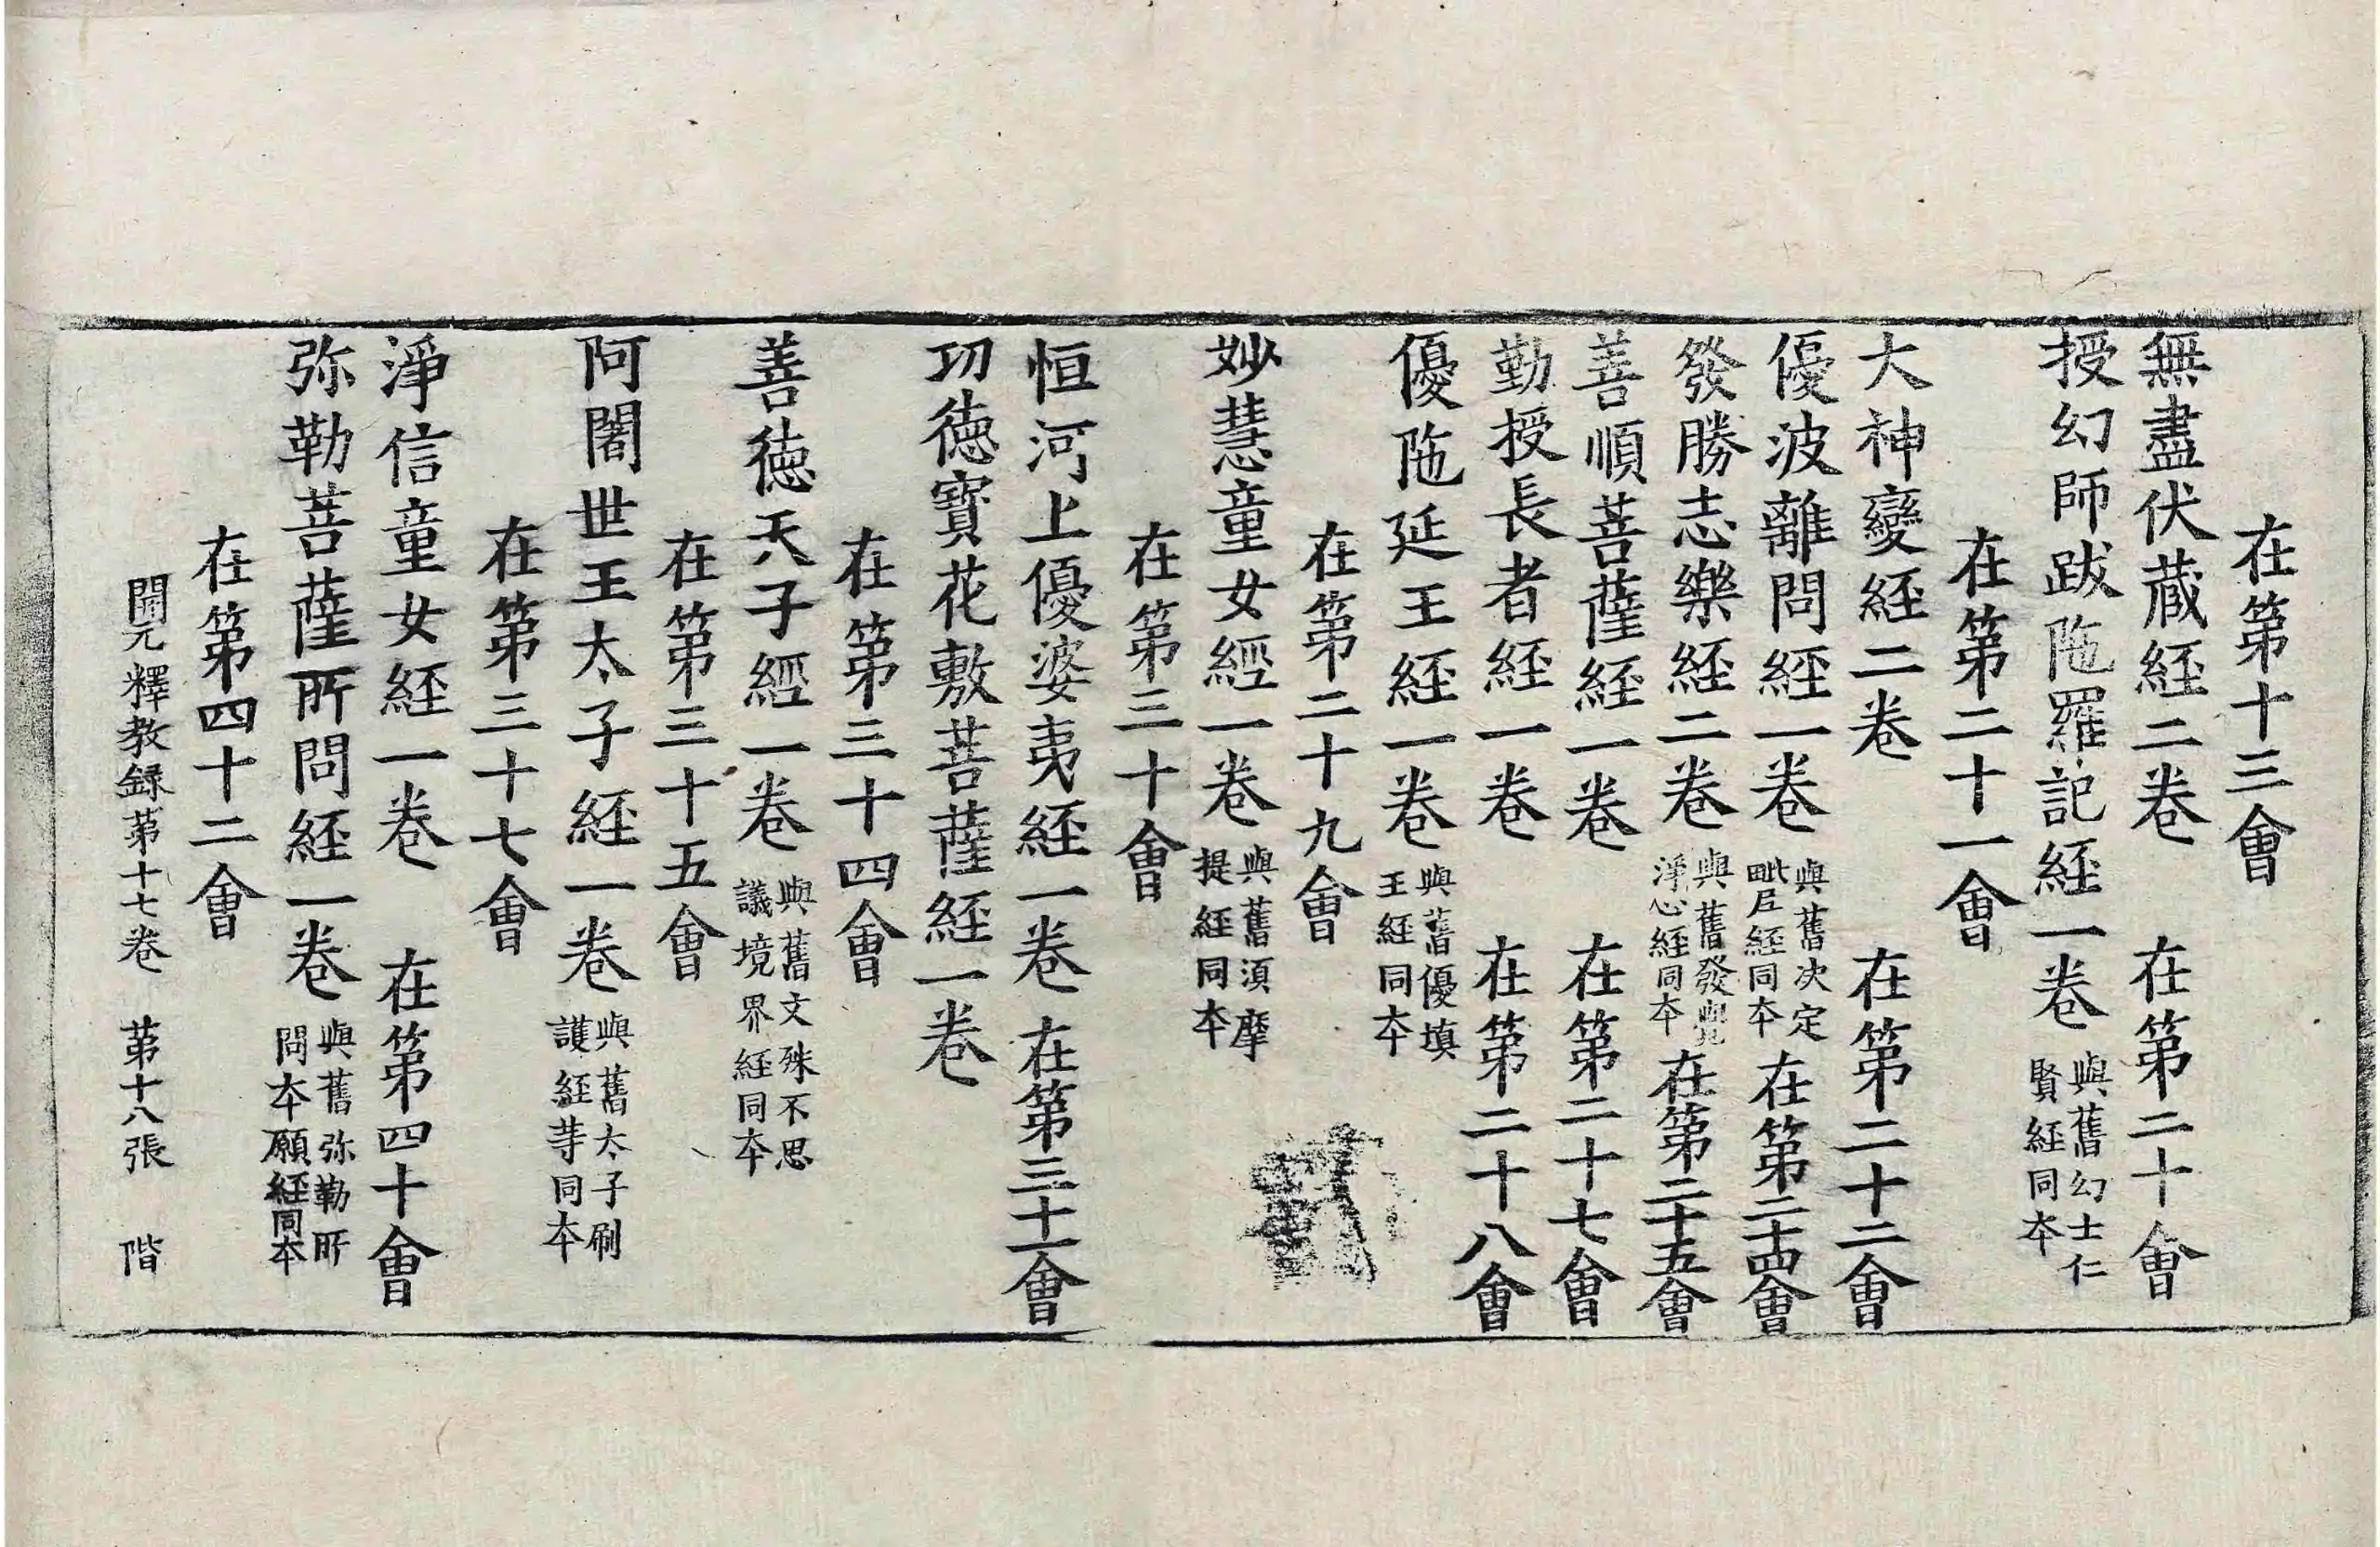 在第十三會
無盡伏蔵経二卷　在第二十會
授幻師跋陁羅記経一卷 與舊幻士仁賢経同本
在第二十一會
大神變経二卷　在第二十二會
優波離問経一卷 與舊决定毗尼経同本 在第二十四會
發勝志樂経二卷 與舊發覺淨心経同本 在第二十五會
善順菩薩経一卷　在第二十七會
勤授長者経一卷　在第二十八會
優陁延王経一卷 與舊優填王経同本
在第二十九會
妙慧童女經一卷 與舊湏摩提経同本
在第三十會
恒河上優婆夷経一卷　在第三十一會
功徳寶花敷菩薩経一卷
在第三十四會
善徳天子經一卷 與舊文殊不思議境界経同本
在第三十五會
阿闍世王太子経一卷 與舊太子刷護経等同本
在第三十七會
淨信童女経一卷　在第四十會
弥勒菩薩所問経一卷 與舊弥勒所問本願経同本
在第四十二會
開元釋教録第十七卷　第十八張　階